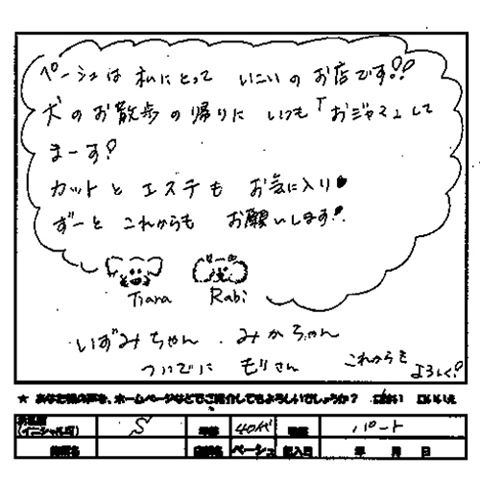 ペーシュは 私にとって いこいの お店です!!
犬の お散歩の帰りに いつも「おジャマ」して
まーす!
カットと エステも お気に入り♥
ずーと これからも お願いします!
Tiara Rabi
いずみちゃん . みかちゃん
ついでに もりさん これからも よろしく!
★ あなた様の声を、ホームページなどでご紹介してもよろしいでしょうか? □はい □いいえ
(イニシャル可) S 年齢 40代 職業 パート
店舗名 ペーシュ 記入日 年 月 日